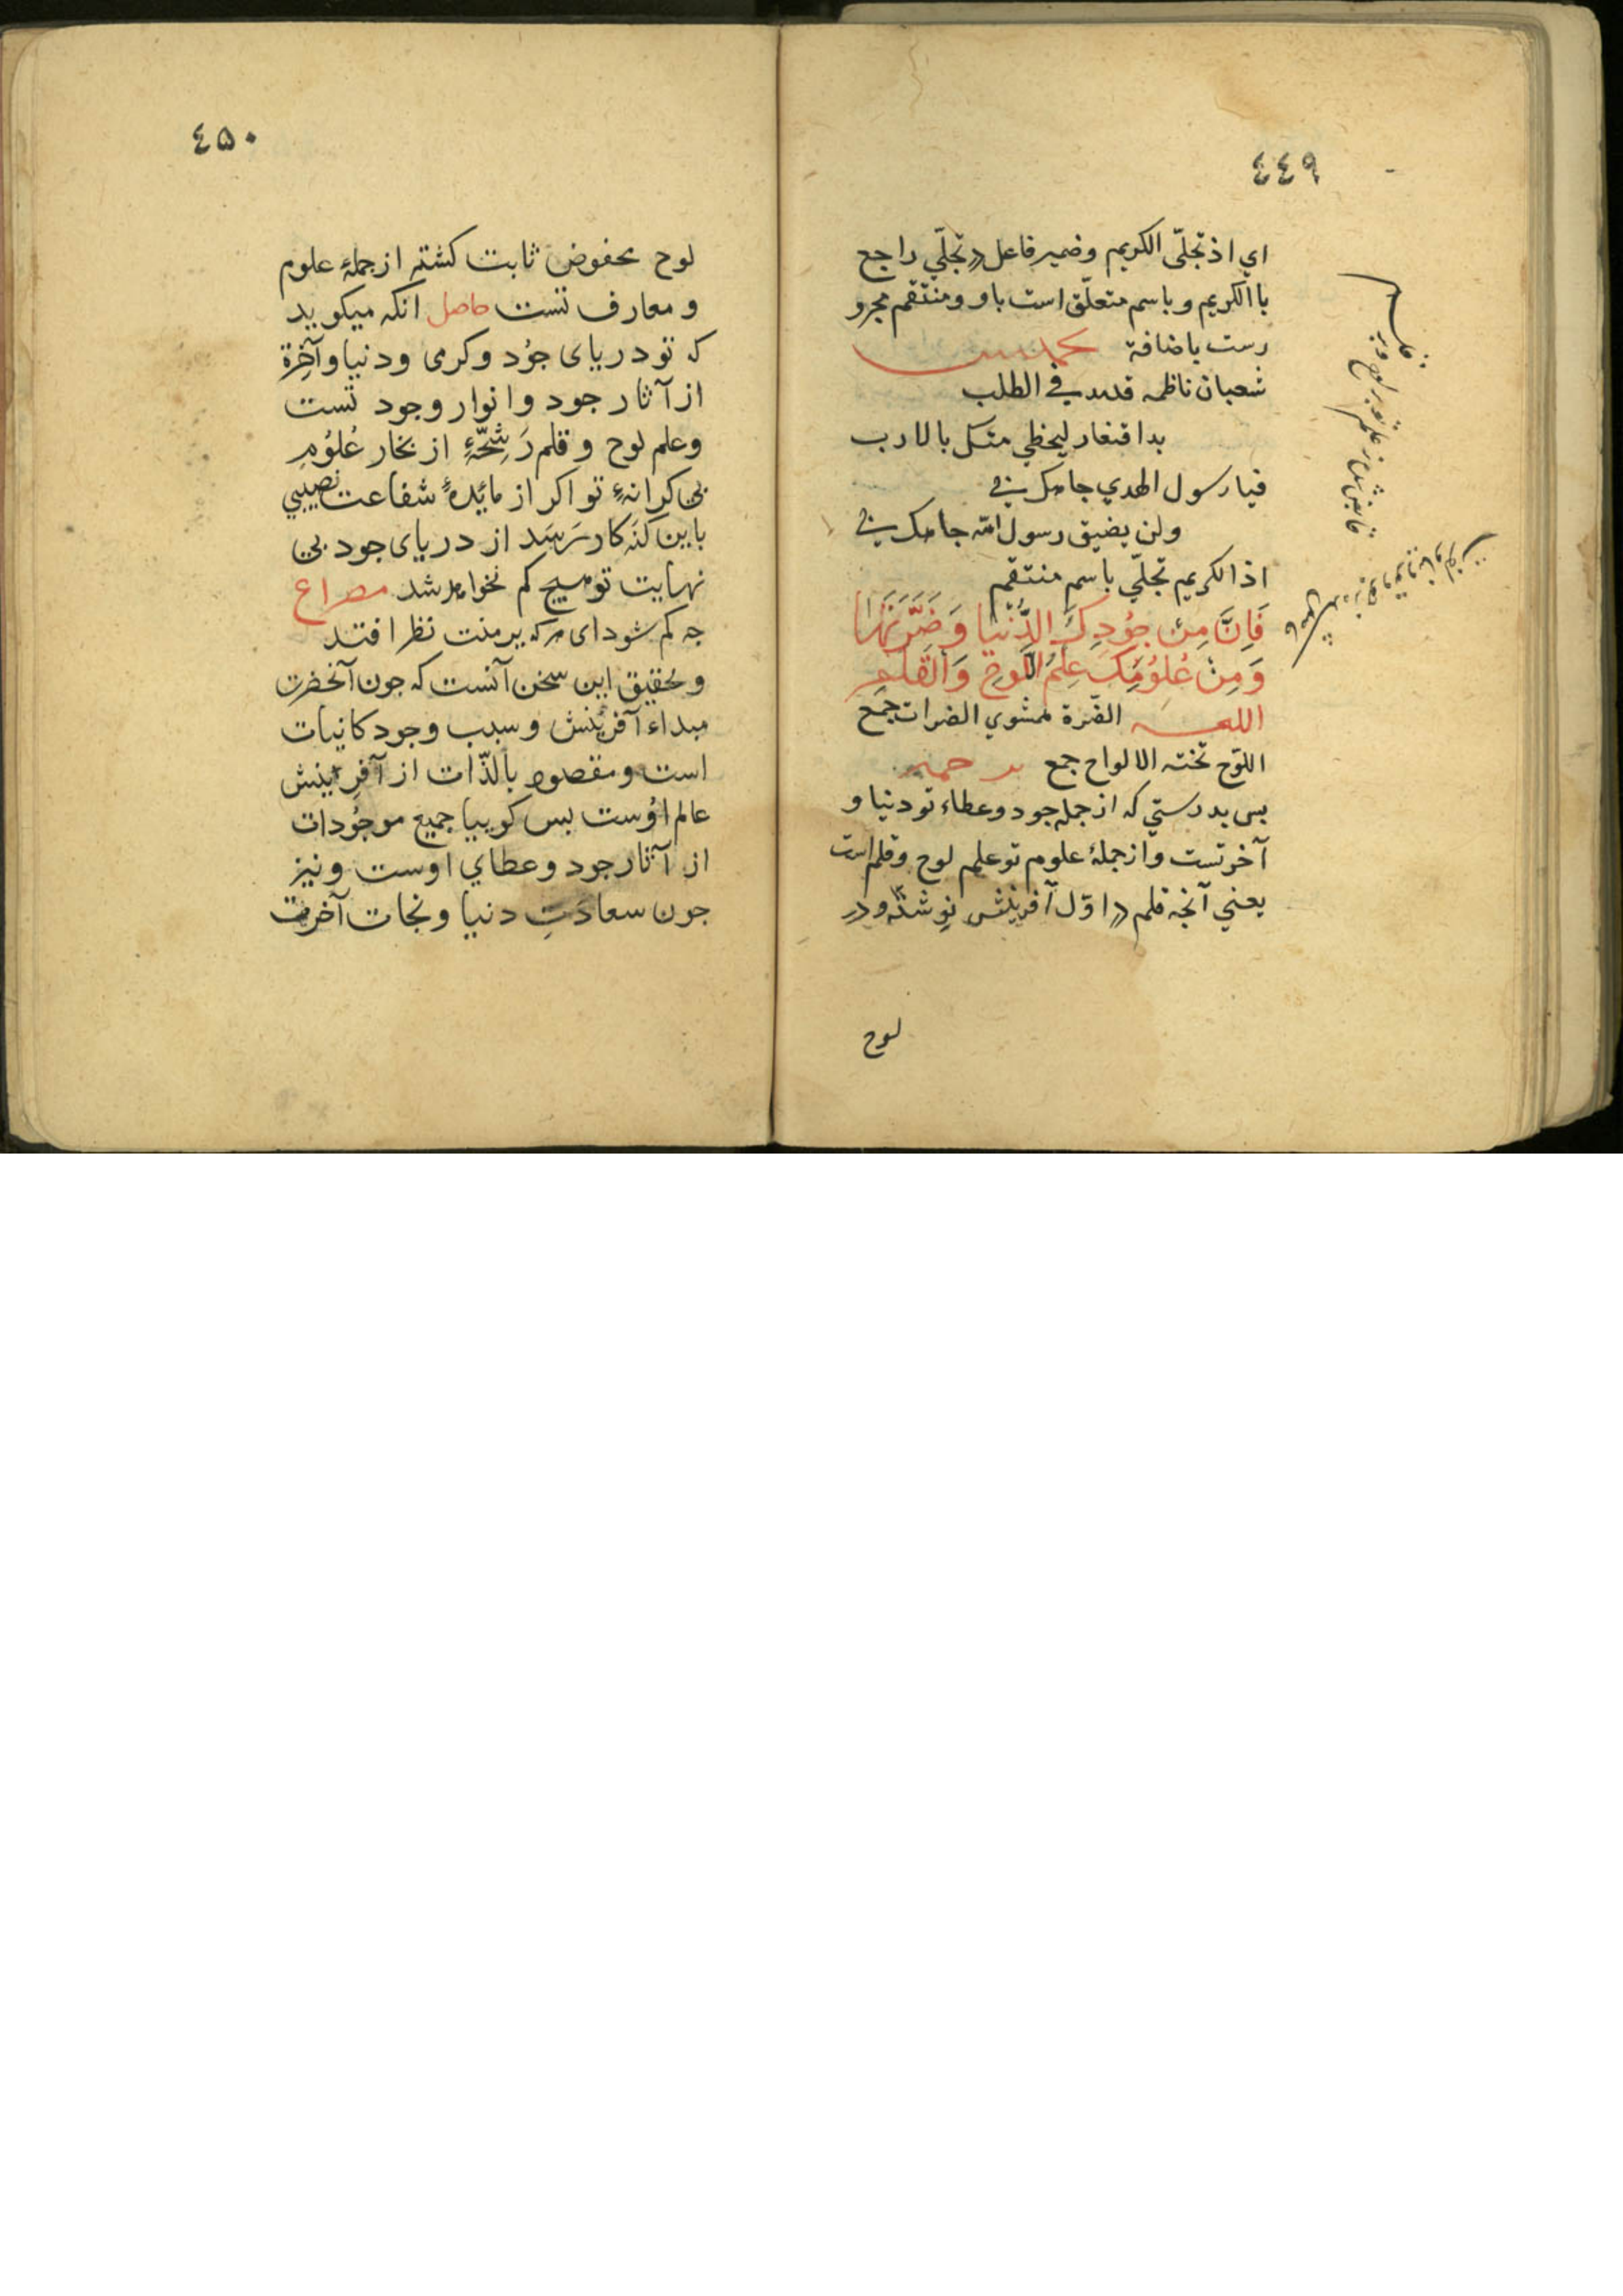 ٤٤٩
اي اذ تجلّى الكريم وضمير فاعل در تجلّي راجع
با الكريم و باسم متعلّق است باو و منتقم مجرو
رست باضافة
شعبان ناظمه في الطلب
بدا متكل بالارب
فيا رسول الهدي جاهك بي
ولن يضيق رسول الله جاهك بي
اذا الكريم تجلّي باسم منتقم
فَاِنَّ مِنْ جُودِكَ الدُّنْيَا وَضَرَّتَهَا
وَمِنْ عُلُومِكَ عِلْمُ اللَّوحِ وَالْقَلَمِ
اللغة الضّرة الضرات جمع
اللوّح تخته الالواح جمع
بس بدرستي كه از جمله جود وعطاء تو دنيا و
آخرتست و از جملهٔ علوم تو علم لوح و قلم است
يعني آنجه قلم در اوّل آفرينش نوشته و در
لوح
٤٥٠
لوح محفوض ثابت كشته از جملهٔ علوم
و معارف تست حاصل انكه ميكويد
كه تو درياى جُود و كرمى ودنيا وآخِرة
از آثار جود و انوار وجود تست
وعلم لوح و قلم رَشِحّهٔ از بحار عُلُومِ
بى كرانهٔ تو اكر از مائدهٔ شفاعت نصيبي
باين كنَه كار رَسَد از درياى جود بى
نهايت تو هيچ كم نخواهد شد مصراع
جه كم شود اى مه كه بر منت نظر افتد
و تحقيق اين سخن آنست كه جون آنحضرت
مبداء آفرينش و سبب وجود كاينات
است و مقصود بالذّات از آفرينش
عالم اوُست بس كوييا جميع موجُودات
از آثار جود و عطاي اوست و نيز
جون سعادَتِ دنيا و نجات آخرت